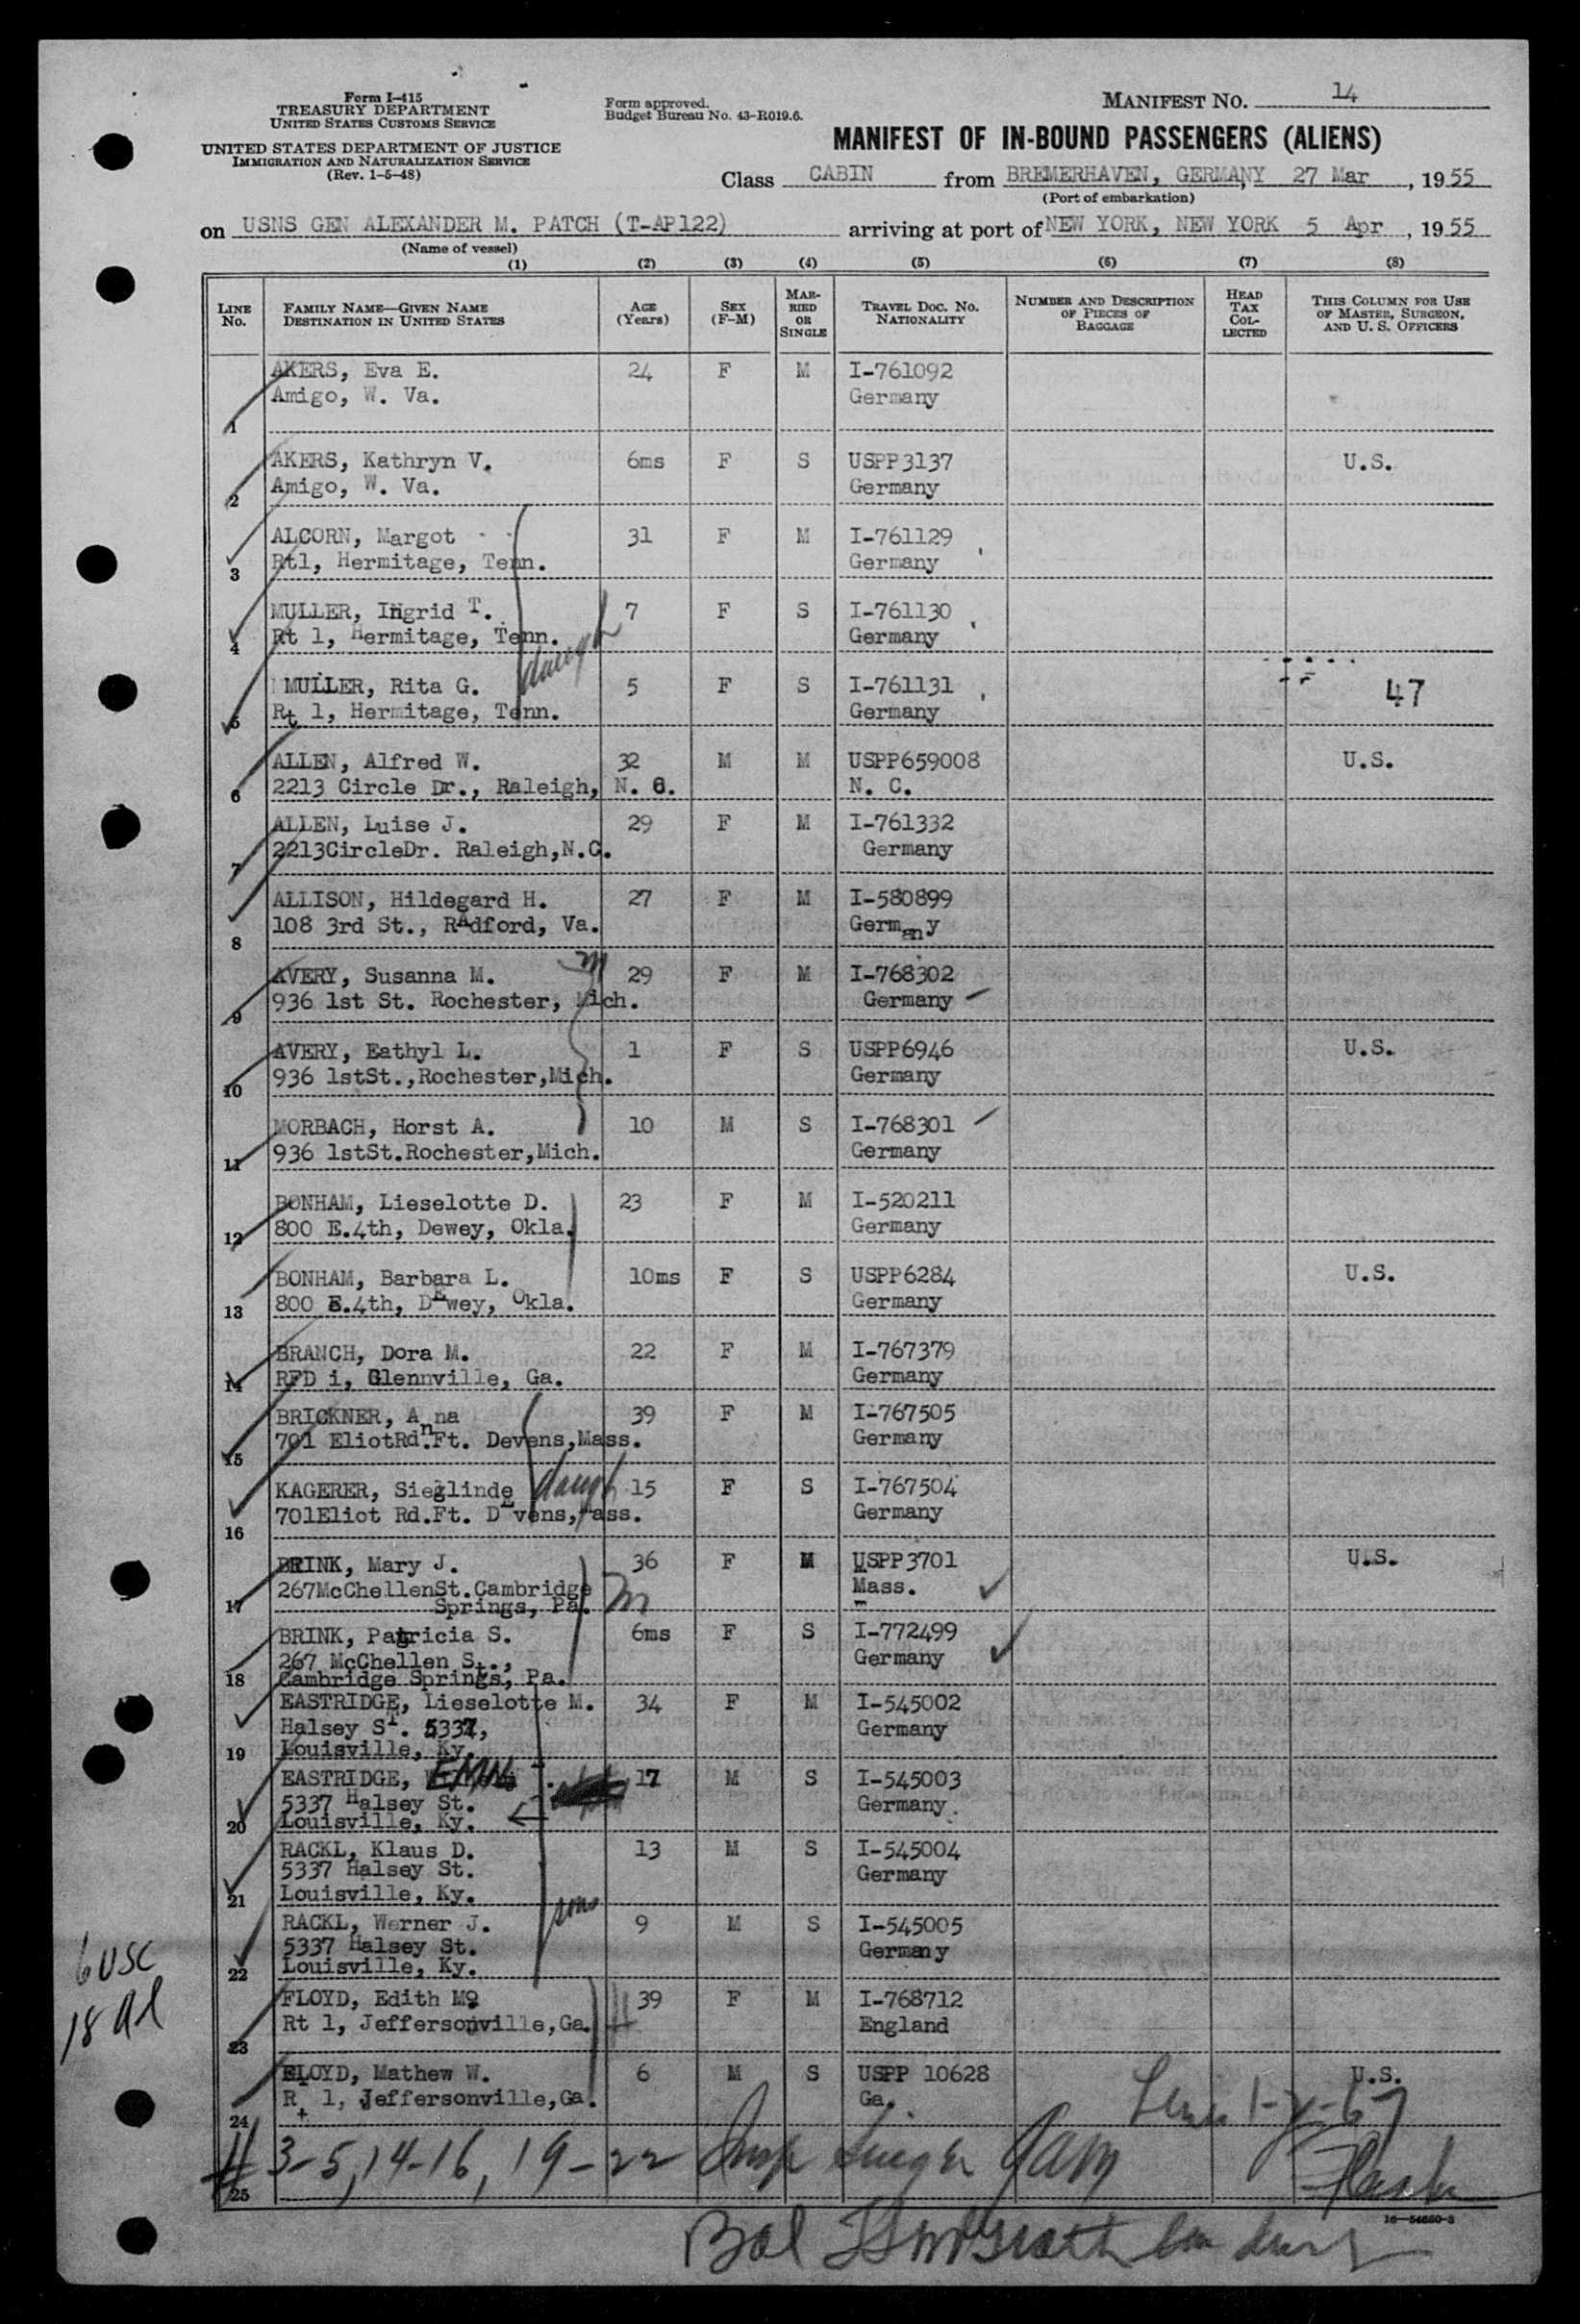 Form I-415
TREASURY DEPARTMENT
UNITED STATES CUSTOMS SERVICE
UNITED STATES DEPARTMENT OF JUSTICE
IMMIGRATION AND NATURALIZATION SERVICE
(Rev. 1-5-48)
Form approved.
Budget Bureau No. 43-R019.6.
MANIFEST NO. 14
MANIFEST OF IN-BOUND PASSENGERS (ALIENS)
Class CABIN from BREMERHAVEN, GERMANY 27 Mar, 1955
(Port of embarkation)
on USNS GEN ALEXANDER M. PATCH (T-AP122) arriving at port of NEW YORK, NEW YORK 5 Apr, 1955
(Name of vessel)
(1) (2) (3) (4) (5) (6) (7) (8)
LINE No. FAMILY NAME—GIVEN NAME DESTINATION IN UNITED STATES AGE (Years) SEX (F-M) MARRIED OR SINGLE TRAVEL DOC. NO. NATIONALITY NUMBER AND DESCRIPTION OF PIECES OF BAGGAGE HEAD TAX COLLECTED THIS COLUMN FOR USE OF MASTER, SURGEON, AND U. S. OFFICERS
AKERS, Eva E. 24 F M I-761092
1 Amigo, W. Va. Germany
AKERS, Kathryn V. 6ms F S USPP3137 U.S.
2 Amigo, W. Va. Germany
ALCORN, Margot 31 F M I-761129
3 Rt1, Hermitage, Tenn. Germany
MULLER, Ingrid T. 7 F S I-761130
4 Rt 1, Hermitage, Tenn. Germany
daugh
MULLER, Rita G. 5 F S I-761131 47
5 Rt 1, Hermitage, Tenn. Germany
ALLEN, Alfred W. 32 M M USPP659008 U.S.
6 2213 Circle Dr., Raleigh, N. C. N. C.
ALLEN, Luise J. 29 F M I-761332
7 2213CircleDr. Raleigh,N.C. Germany
ALLISON, Hildegard H. 27 F M I-580899
8 108 3rd St., RAdford, Va. Germany
AVERY, Susanna M. m 29 F M I-768302
9 936 1st St. Rochester, Mich. Germany
AVERY, Eathyl L. 1 F S USPP6946 U.S.
10 936 1stSt.,Rochester,Mich. Germany
MORBACH, Horst A. 10 M S I-768301
11 936 1stSt.Rochester,Mich. Germany
BONHAM, Lieselotte D. 23 F M I-520211
12 800 E.4th, Dewey, Okla. Germany
BONHAM, Barbara L. 10ms F S USPP6284 U.S.
13 800 E.4th, DEwey, Okla. Germany
BRANCH, Dora M. 22 F M I-767379
14 RFD i, Glennville, Ga. Germany
BRICKNER, Anna 39 F M I-767505
15 701 EliotRd.Ft. Devens,Mass. Germany
KAGERER, Sieglinde daugh 15 F S I-767504
16 701Eliot Rd.Ft. DEvens,Mass. Germany
BRINK, Mary J. 36 F M USPP3701 U.S.
267McChellenSt.Cambridge m Mass.
17 Springs, Pa.
BRINK, Patricia S. 6ms F S I-772499
267 McChellen St., Germany
18 Cambridge Springs, Pa.
EASTRIDGE, Lieselotte M. 34 F M I-545002
Halsey ST. 5337, Germany
19 Louisville, Ky.
EASTRIDGE, 17 M S I-545003
5337 Halsey St. Germany
20 Louisville, Ky.
RACKL, Klaus D. 13 M S I-545004
5337 Halsey St. Germany
21 Louisville, Ky.
RACKL, Werner J. sons 9 M S I-545005
5337 Halsey St. Germany
22 Louisville, Ky.
FLOYD, Edith M. 39 F M I-768712
23 Rt 1, Jeffersonville,Ga. England
FLOYD, Mathew W. 6 M S USPP 10628 U.S.
24 Rt 1, Jeffersonville,Ga. Ga.
6 USC
18 Al
# 3-5, 14-16, 19-22 Insp
25
16—54660-3
Bal